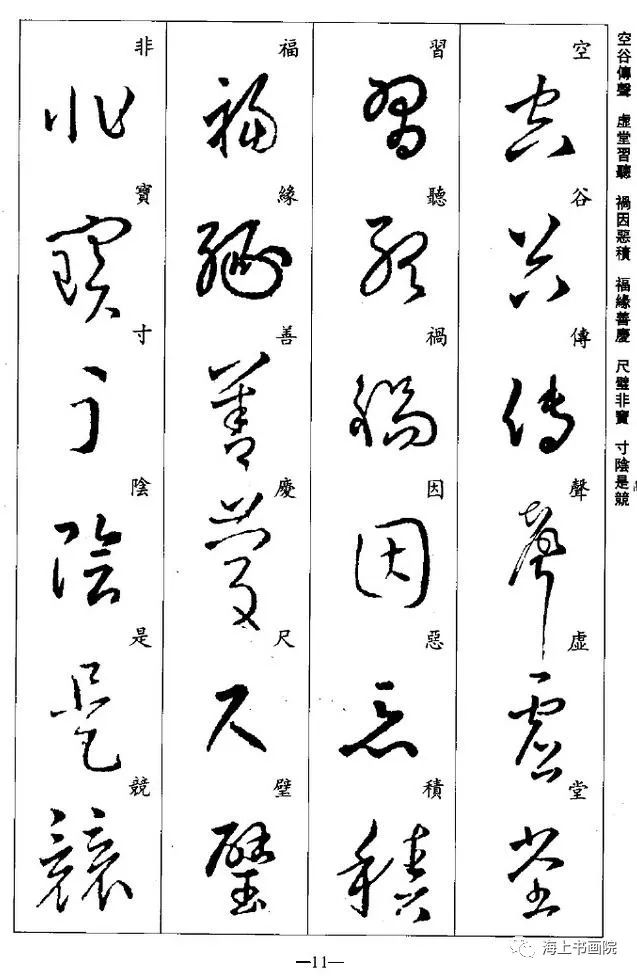 空谷傳聲 虛堂習聽 禍因惡積 福緣善慶 尺璧非寶 寸陰是競
空谷傳聲虛堂
習聽禍因惡積
福緣善慶尺璧
非寶寸陰是競
—11—
海上书画院